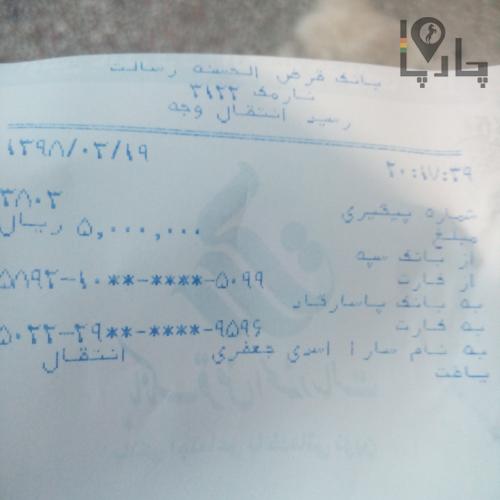 چارپا
بانک قرض الحسنه رسالت
نارمک ۳۱۲۲
رسید انتقال وجه
۱۳۹۸/۰۳/۱۹ ۲۰:۱۷:۳۹
شماره پیگیری ۳۸۰۳
مبلغ ۵,۰۰۰,۰۰۰ ریال
از بانک سپه
از کارت ۵۸۹۲-۱۰**-****-۵۰۹۹
به بانک پاسارگاد
به کارت ۵۰۲۲-۲۹**-****-۹۵۹۶
به نام سارا اسدی جعفری انتقال
یافت